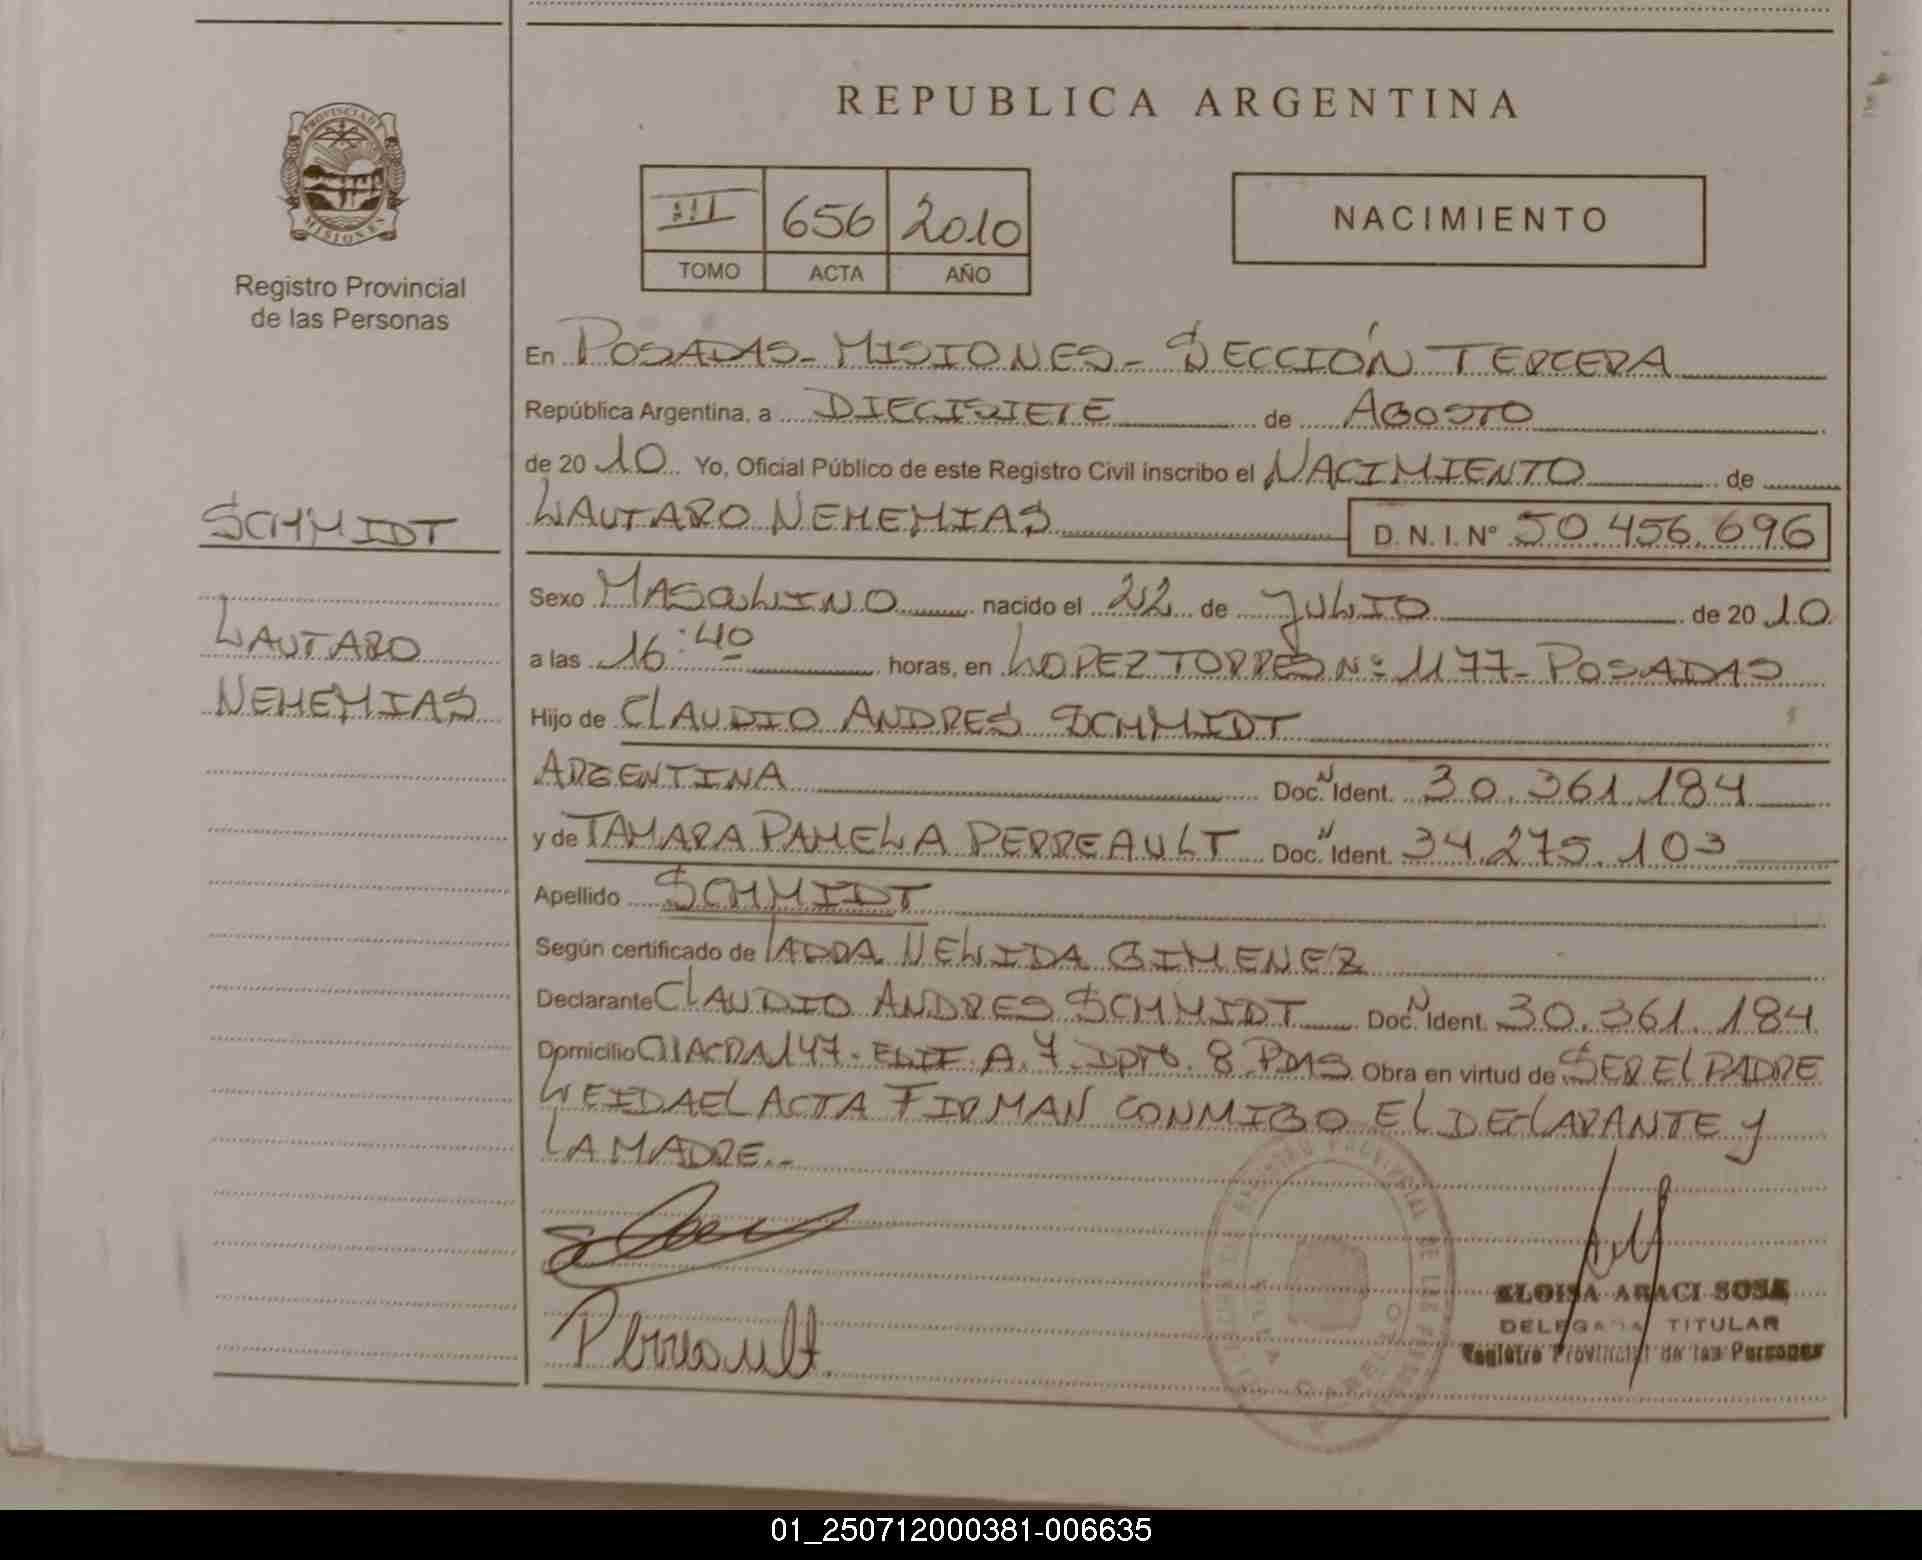 REPUBLICA ARGENTINA
PROVINCIA DE
MISIONES
Registro Provincial
de las Personas
III 656 2010
TOMO ACTA AÑO
NACIMIENTO
En POSADAS - MISIONES - SECCIÓN TERCERA
República Argentina, a DIECISIETE de AGOSTO
de 2010 Yo, Oficial Público de este Registro Civil inscribo el NACIMIENTO de
LAUTARO NEHEMIAS D. N. I. N° 50.456.696
SCHMIDT
LAUTARO
NEHEMIAS
Sexo MASCULINO nacido el 22 de JULIO de 2010
a las 16:40 horas, en LOPEZ TORRES Nº 1177 - POSADAS
Hijo de CLAUDIO ANDRES SCHMIDT
ARGENTINA Doc. N Ident. 30.361.184
y de TAMARA PAMELA PERREAULT Doc. N Ident. 34.275.103
Apellido SCHMIDT
Según certificado de NELIDA GIMENEZ
Declarante CLAUDIO ANDRES SCHMIDT Doc. N Ident. 30.361.184
Domicilio CHACRA 147 - EDIF. A. 7. DPTO. 8. PDAS Obra en virtud de SER EL PADRE
LEIDA EL ACTA FIRMAN CONMIGO EL DECLARANTE Y
LA MADRE.-
Perreault
ELOISA ARACI SOSA
DELEGADA TITULAR
Registro Provincial de las Personas
01_250712000381-006635